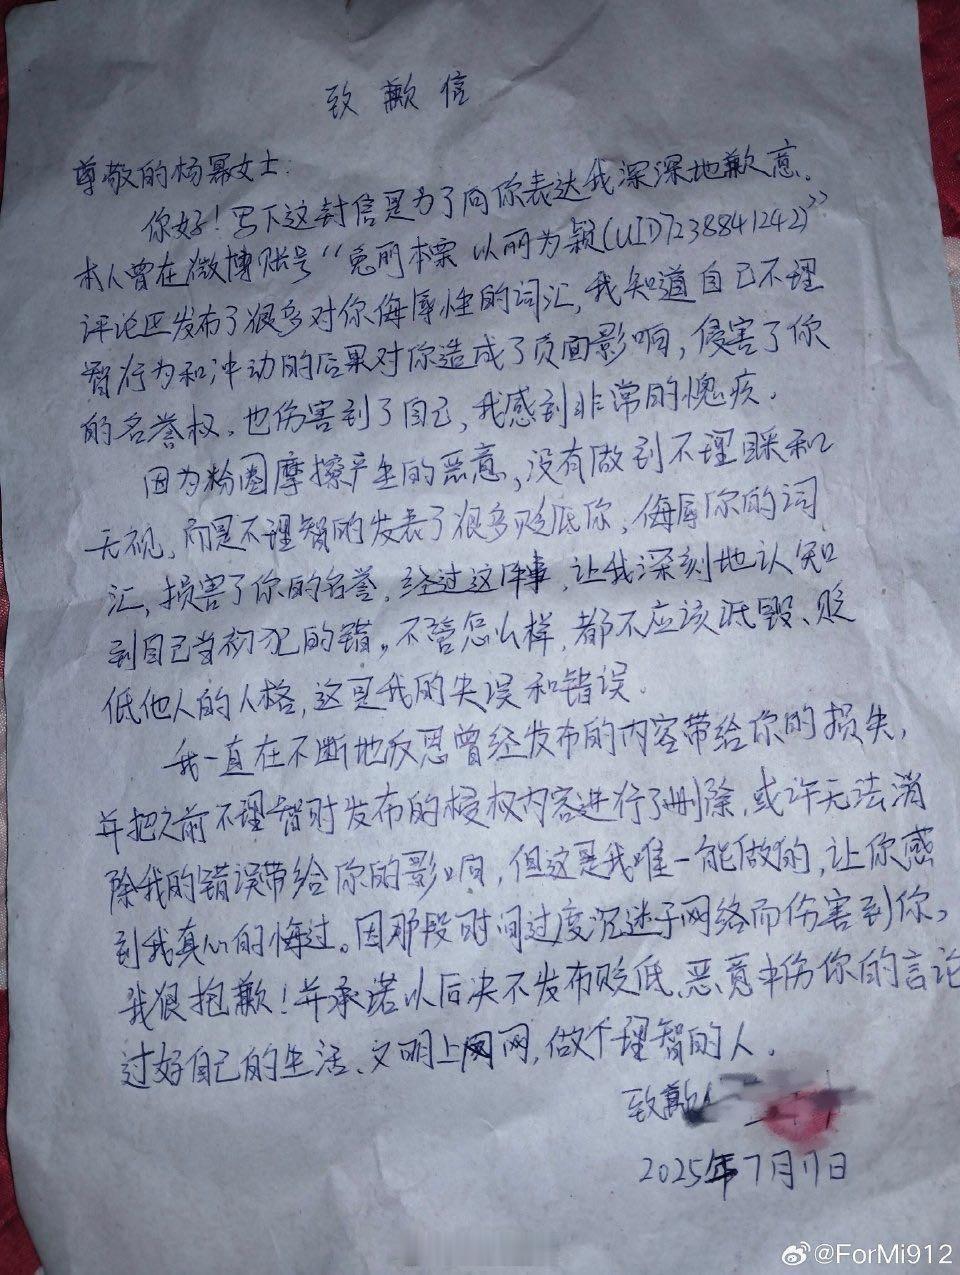 致歉信
尊敬的杨幂女士:
你好!写下这封信是为了向你表达我深深地歉意.
本人曾在微博账号“兔丽本票 以丽为颖(UID7238841242)”
评论区发布了很多对你侮辱性的词汇,我知道自己不理
智行为和冲动的后果对你造成了负面影响,侵害了你
的名誉权,也伤害到了自己,我感到非常的愧疚.
因为粉圈摩擦产生的恶意,没有做到不理睬和
无视,而是不理智的发表了很多贬低你,侮辱你的词
汇,损害了你的名誉,经过这件事,让我深刻地认知
到自己当初犯的错。不管怎么样,都不应该诋毁、贬
低他人的人格,这是我的失误和错误.
我一直在不断地反思曾经发布的内容带给你的损失,
并把之前不理智时发布的侵权内容进行了删除,或许无法消
除我的错误带给你的影响,但这是我唯一能做的,让你感
到我真心的悔过。因那段时间过度沉迷于网络而伤害到你,
我很抱歉!并承诺以后决不发布贬低、恶意中伤你的言论
过好自己的生活、文明上网,做个理智的人.
致歉人
2025年7月11日
@ForMi912